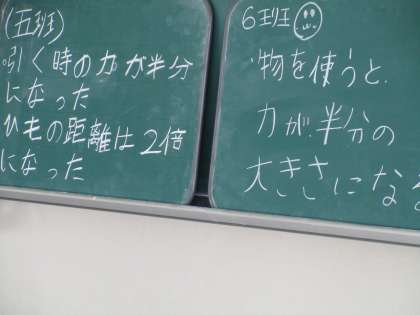 (五班)
・引く時の力が半分
になった
ひもの距離は2倍
になった
6班
・物を使うと、
力が半分の
大きさになる